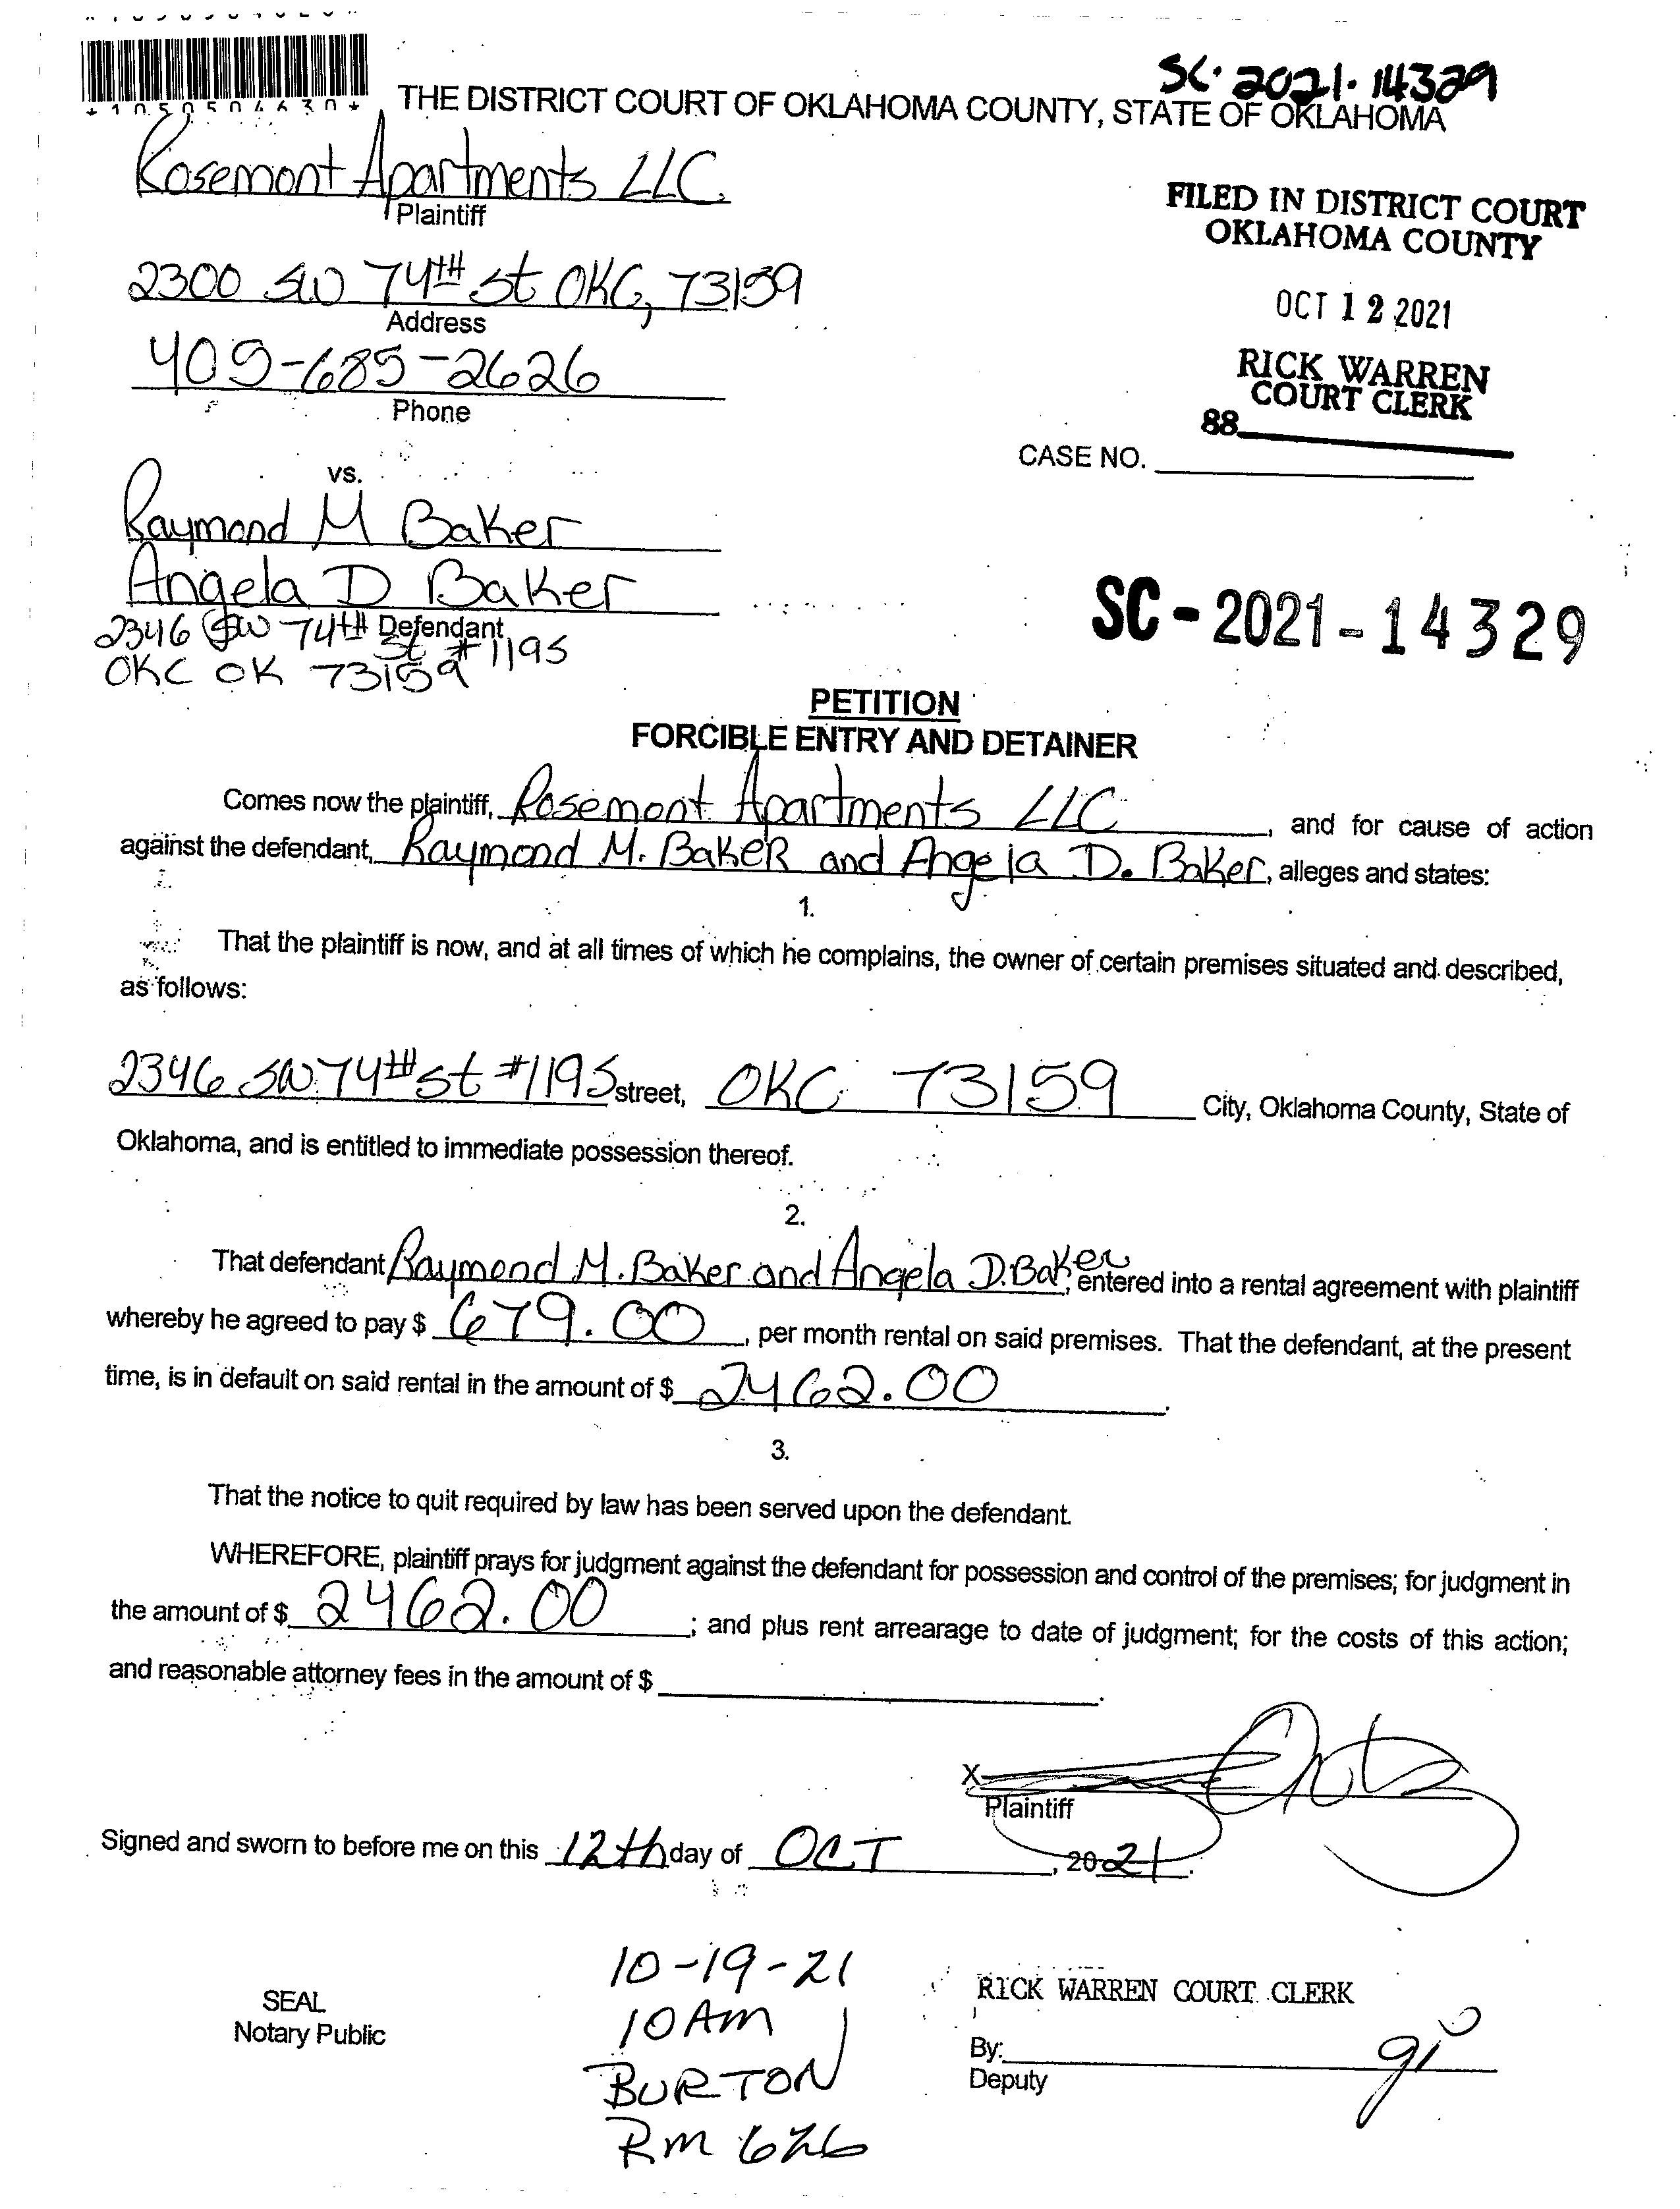 SC-2021-14329
*1050504630*
THE DISTRICT COURT OF OKLAHOMA COUNTY, STATE OF OKLAHOMA
Rosemont Apartments LLC.
Plaintiff
FILED IN DISTRICT COURT
OKLAHOMA COUNTY
2300 SW 74TH St OKC, 73159
Address
OCT 12 2021
409-685-2626
Phone
RICK WARREN
COURT CLERK
88
CASE NO.
vs.
Raymond M Baker
Angela D Baker
Defendant
2346 SW 74TH St #1195
OKC OK 73159
SC-2021-14329
PETITION
FORCIBLE ENTRY AND DETAINER
Comes now the plaintiff, Rosemont Apartments LLC, and for cause of action
against the defendant, Raymond M. BakeR and Angela D. Baker, alleges and states:
1.
That the plaintiff is now, and at all times of which he complains, the owner of certain premises situated and described,
as follows:
2346 SW 74TH St #1195 street, OKC 73159 City, Oklahoma County, State of
Oklahoma, and is entitled to immediate possession thereof.
2.
That defendant Raymond M. Baker and Angela D. Baker, entered into a rental agreement with plaintiff
whereby he agreed to pay $ 679.00, per month rental on said premises. That the defendant, at the present
time, is in default on said rental in the amount of $ 2462.00.
3.
That the notice to quit required by law has been served upon the defendant.
WHEREFORE, plaintiff prays for judgment against the defendant for possession and control of the premises; for judgment in
the amount of $ 2462.00; and plus rent arrearage to date of judgment; for the costs of this action;
and reasonable attorney fees in the amount of $
X
Plaintiff
Signed and sworn to before me on this 12th day of OCT, 2021.
10-19-21
10 AM
BURTON
RM 626
SEAL
Notary Public
RICK WARREN COURT CLERK
By:
Deputy